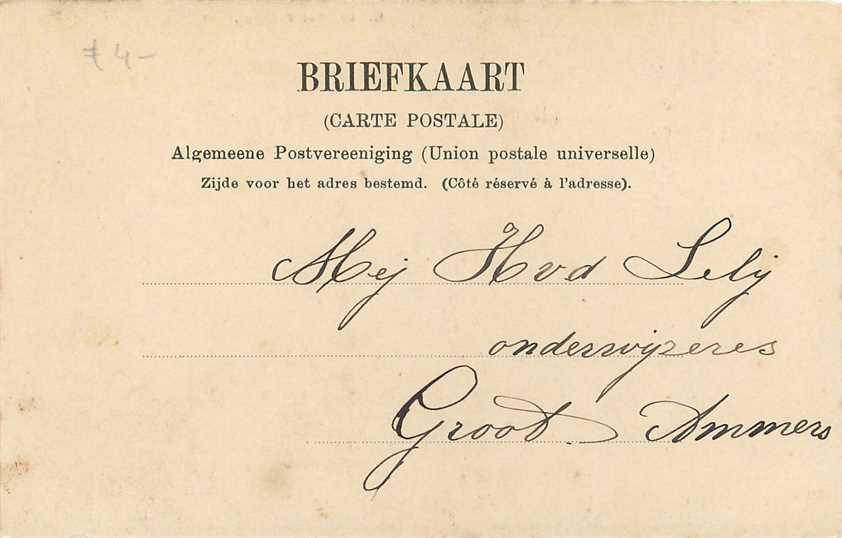 € 4-
BRIEFKAART
(CARTE POSTALE)
Algemeene Postvereeniging (Union postale universelle)
Zijde voor het adres bestemd. (Côté réservé à l'adresse).
Mej Hvd Lelij
onderwijzeres
Groot Ammers